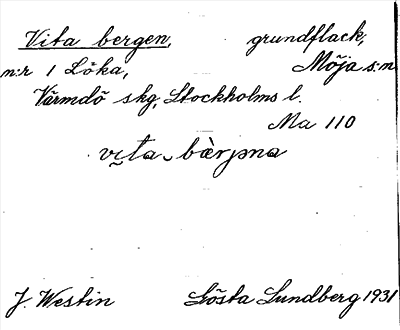 Vita bergen, grundflack,
n:r 1 Löka, Möja s:n
Värmdö skg, Stockholms l.
Ma 110
vı̰ta‿bὲrjəna
J. Westin Gösta Lundberg 1931